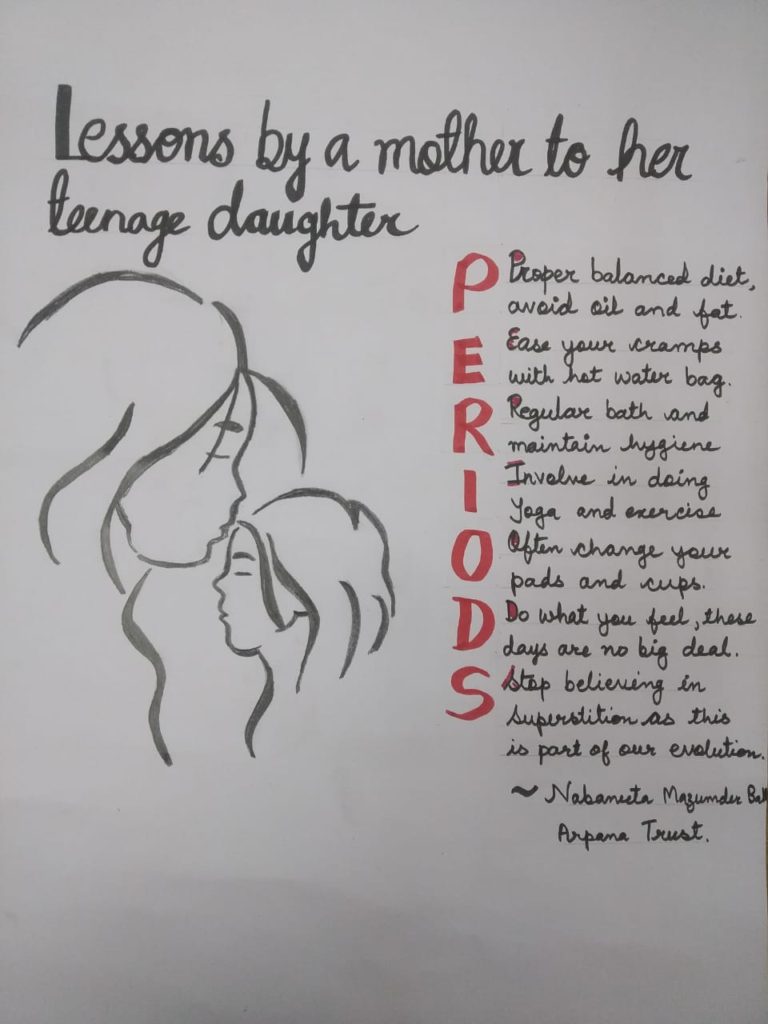 Lessons by a mother to her
teenage daughter
P Proper balanced diet,
avoid oil and fat.
E Ease your cramps
with hot water bag.
R Regular bath and
maintain hygiene
I Involve in doing
Yoga and exercise
O Often change your
pads and cups.
D Do what you feel, these
days are no big deal.
S Stop believing in
Superstition as this
is part of our evolution.
~ Nabaneeta Mazumder
Arpana Trust.